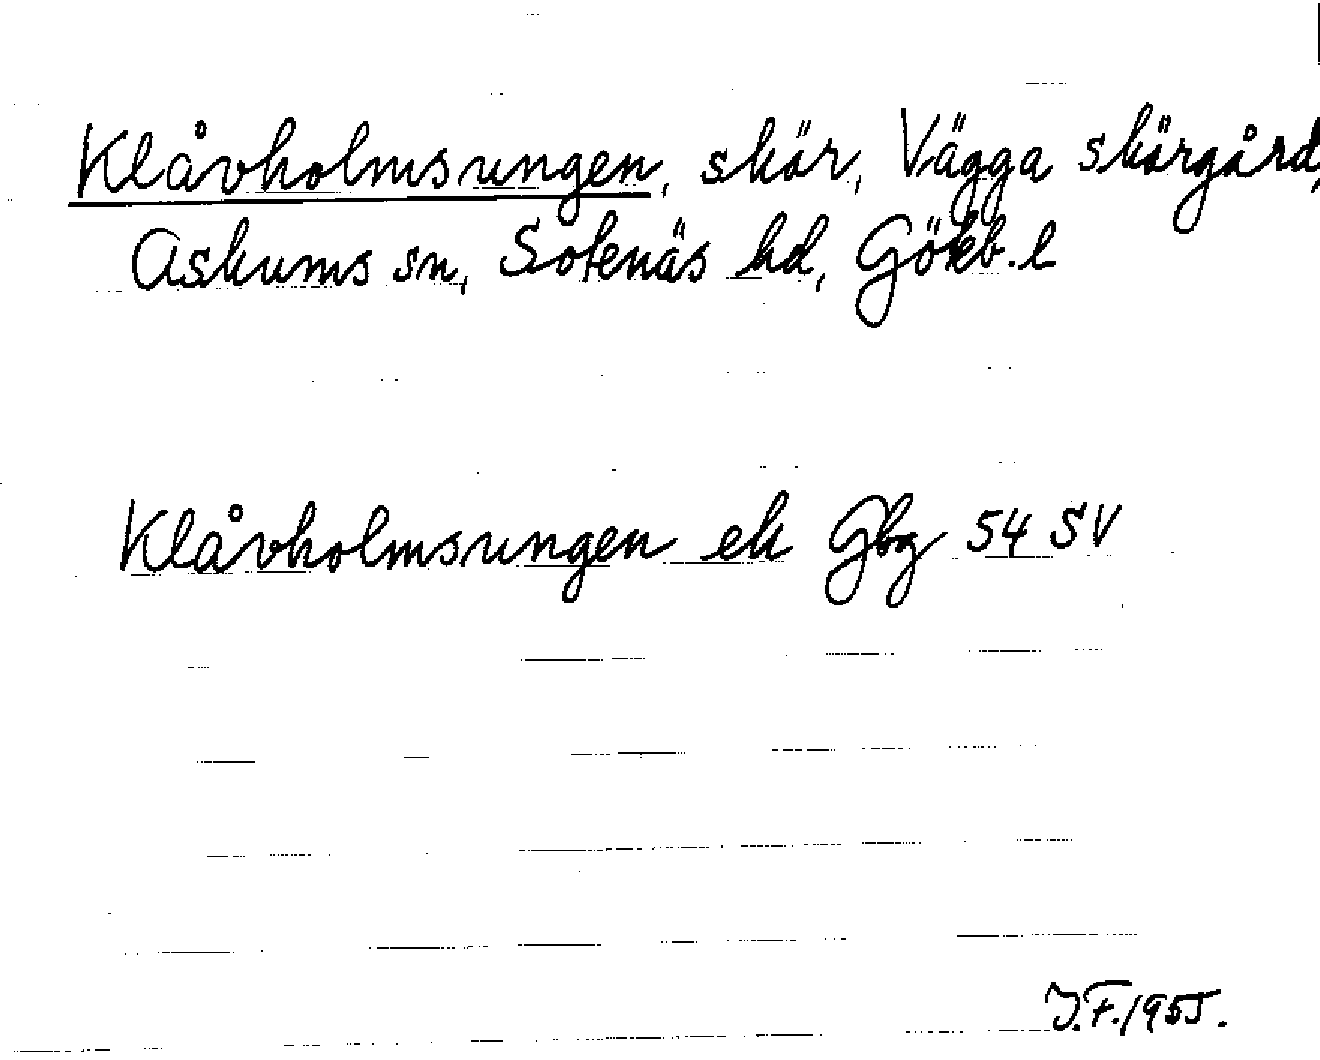 Klåvholmsungen, skär, Vägga skärgård,
Askums sn, Sotenäs hd, Göteb. l
Klåvholmsungen ek Gbg 54 SV
J.F. 1955.